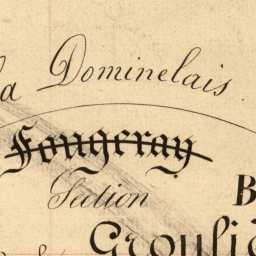 la Dominelais.
Fougeray
Section B
Groulie